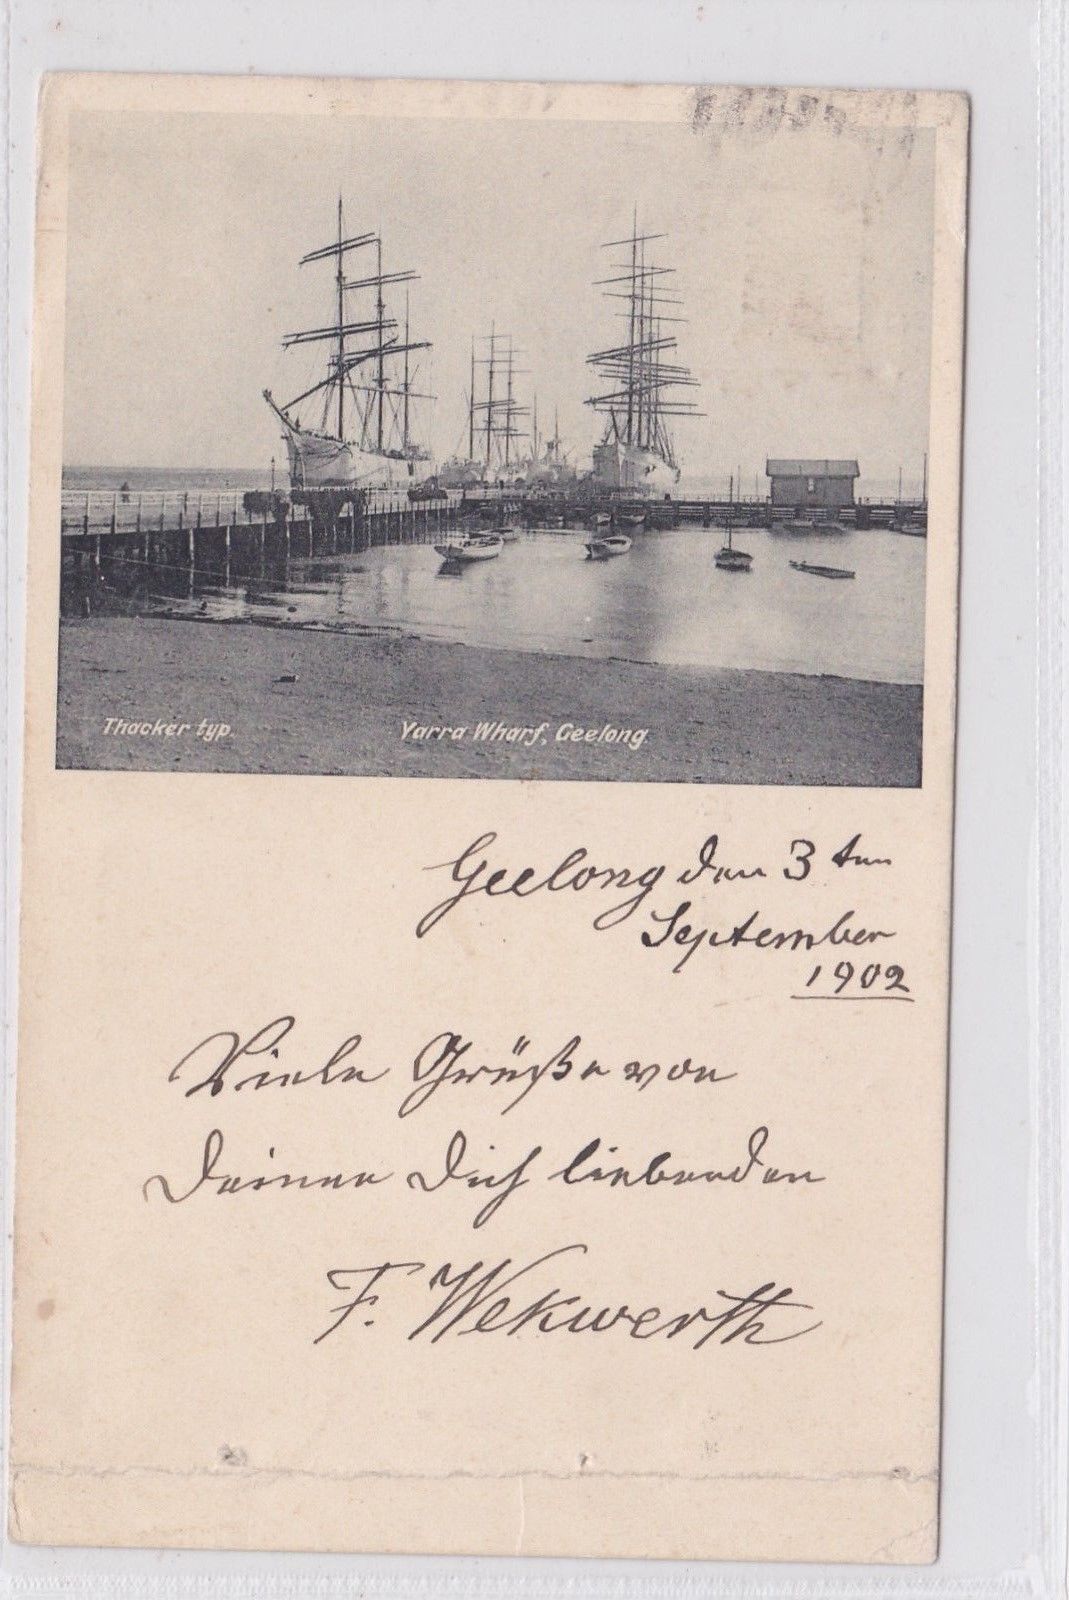 Thacker typ.
Yarra Wharf, Geelong.
Geelong den 3 ten
September
1902
Viele Grüße von
Deinen Dich liebenden
F. Wekwerth